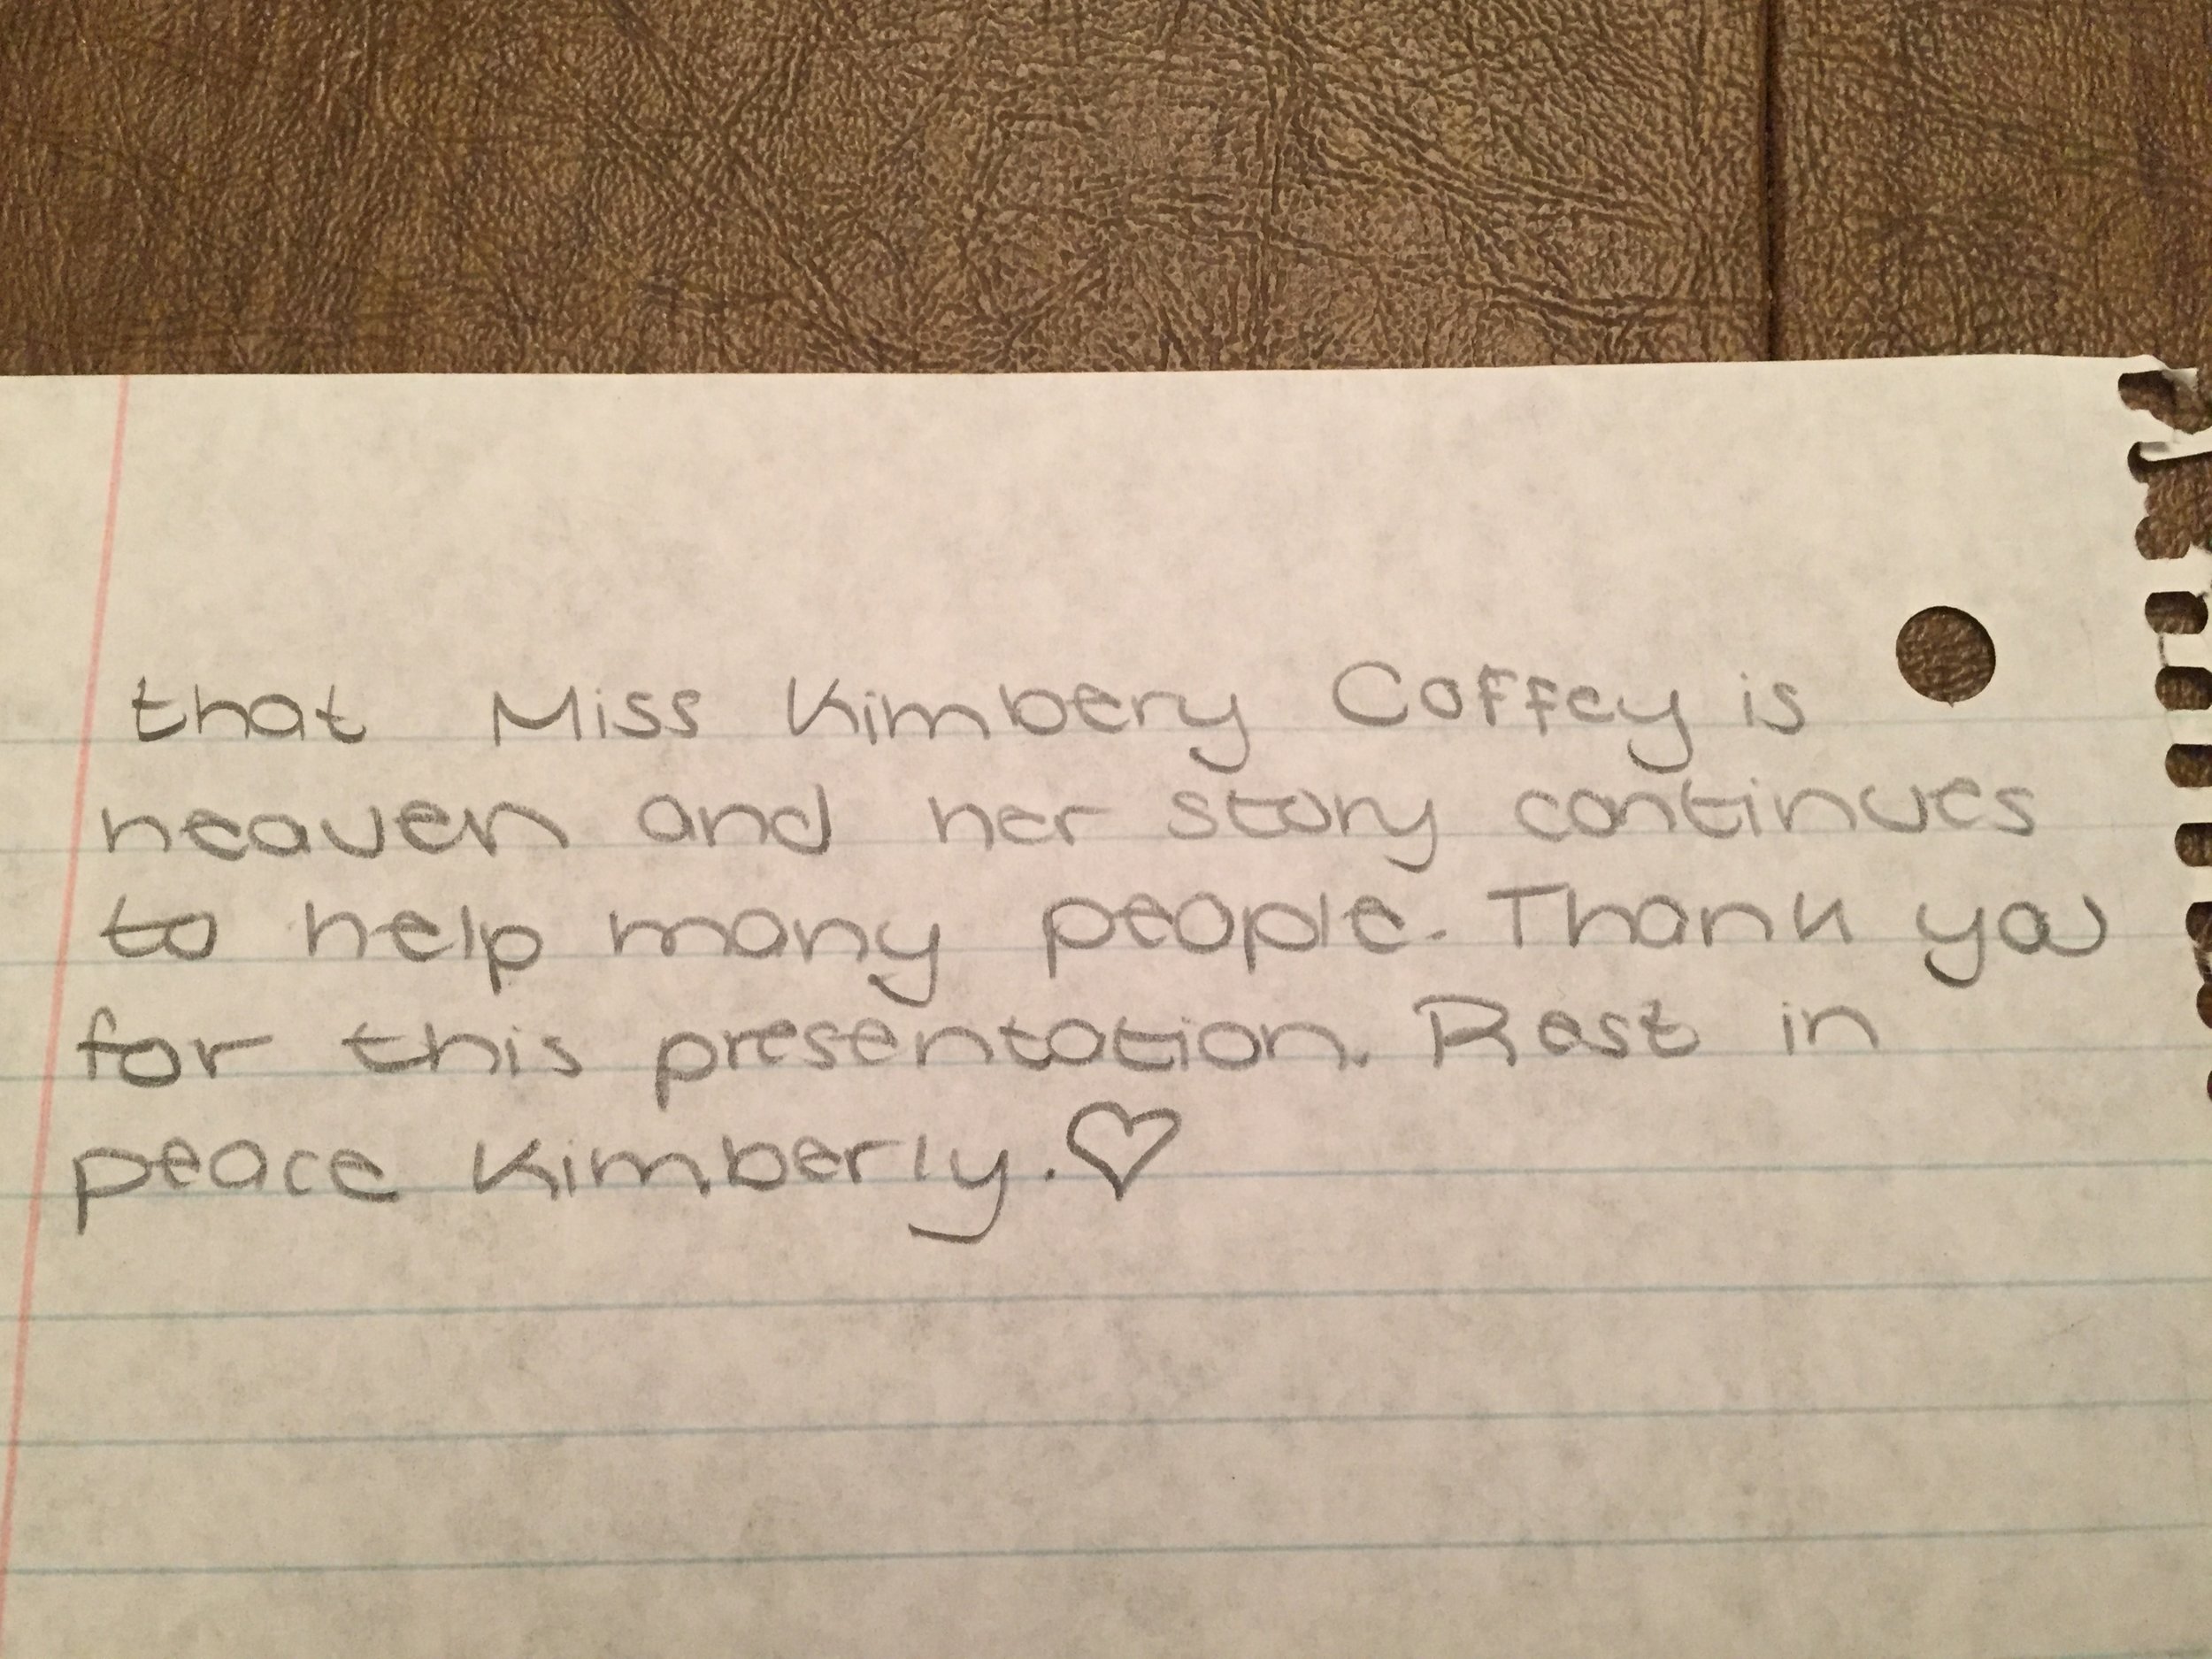 that Miss Kimbery Coffey is
heaven and her story continues
to help many people. Thank you
for this presentation. Rest in
peace Kimberly.♡